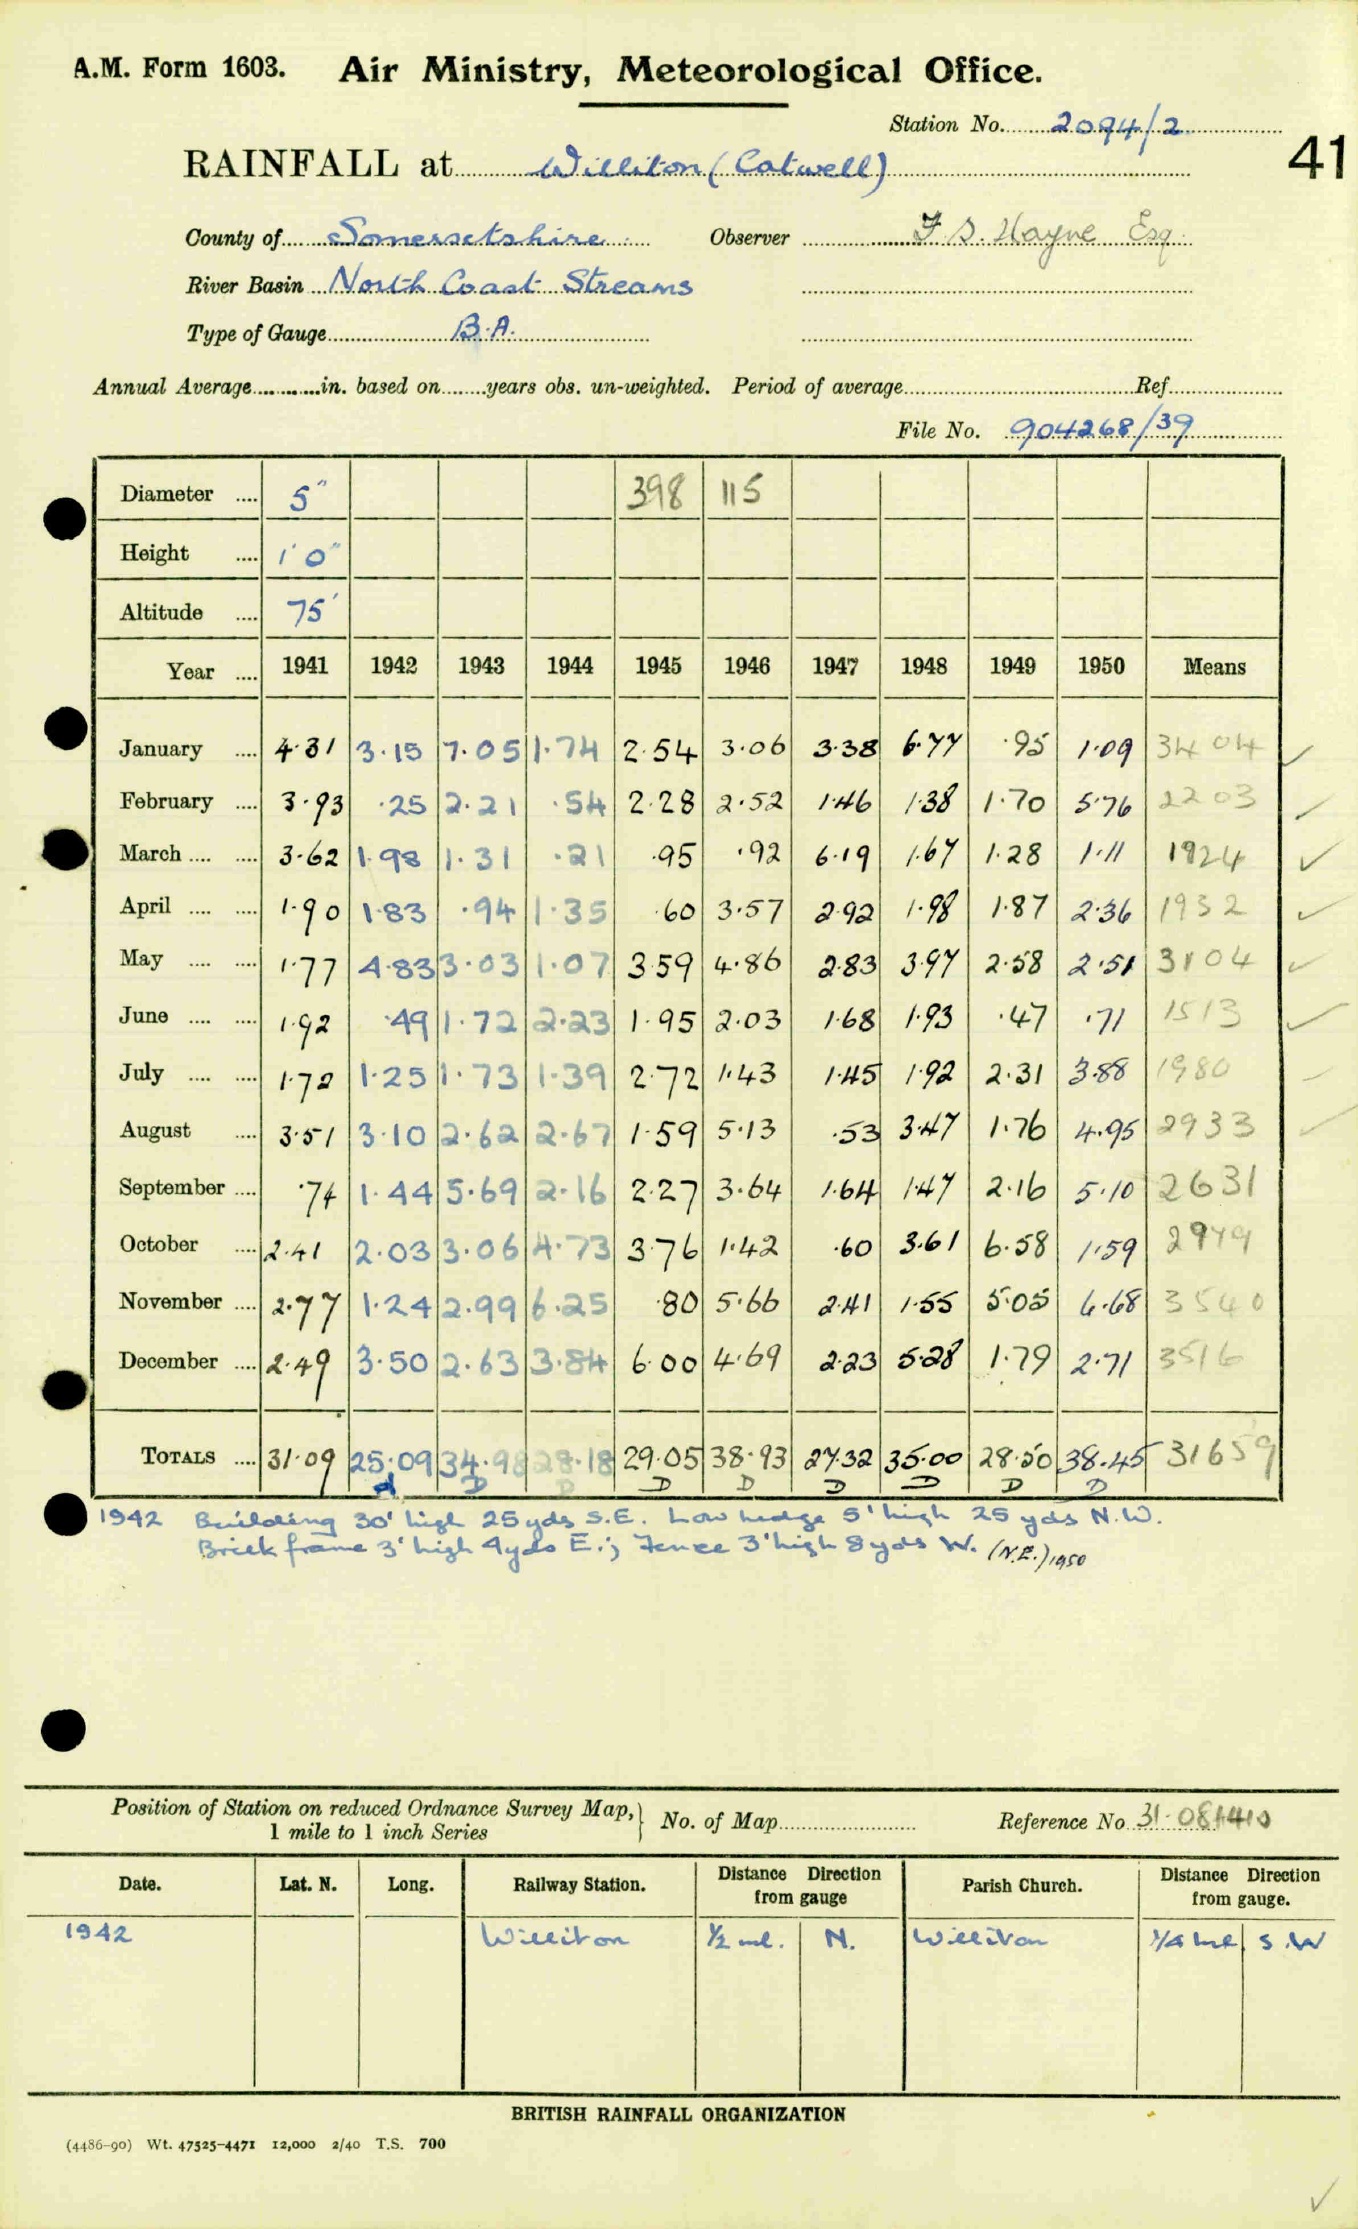 A.M. Form 1603. Air Ministry, Meteorological Office.
Station No. 2094/2
41
RAINFALL at Williton (Catwell)
County of Somersetshire Observer F. S. Hayne Esq.
River Basin North Coast Streams
Type of Gauge B.A.
Annual Average in. based on years obs. un-weighted. Period of average Ref.
File No. 904268/39
Diameter .... 5" 398 115
Height .... 1' 0"
Altitude .... 75'
Year .... 1941 1942 1943 1944 1945 1946 1947 1948 1949 1950 Means
January .... 4.31 3.15 7.05 1.74 2.54 3.06 3.38 6.77 .95 1.09 3404
February .... 3.93 .25 2.21 .54 2.28 2.52 1.46 1.38 1.70 5.76 2203
March .... .... 3.62 1.98 1.31 .21 .95 .92 6.19 1.67 1.28 1.11 1924
April .... .... 1.90 1.83 .94 1.35 .60 3.57 2.92 1.98 1.87 2.36 1932
May .... .... 1.77 4.83 3.03 1.07 3.59 4.86 2.83 3.97 2.58 2.51 3104
June .... .... 1.92 .49 1.72 2.23 1.95 2.03 1.68 1.93 .47 .71 1513
July .... .... 1.72 1.25 1.73 1.39 2.72 1.43 1.45 1.92 2.31 3.88 1980
August .... 3.51 3.10 2.62 2.67 1.59 5.13 .53 3.47 1.76 4.95 2933
September .... .74 1.44 5.69 2.16 2.27 3.64 1.64 1.47 2.16 5.10 2631
October .... 2.41 2.03 3.06 4.73 3.76 1.42 .60 3.61 6.58 1.59 2979
November .... 2.77 1.24 2.99 6.25 .80 5.66 2.41 1.55 5.05 6.68 3540
December .... 2.49 3.50 2.63 3.84 6.00 4.69 2.23 5.28 1.79 2.71 3516
TOTALS .... 31.09 25.09 34.98 28.18 29.05 38.93 27.32 35.00 28.50 38.45 31659
D D D D D D D D
1942 Building 30' high 25 yds S.E. Low hedge 5' high 25 yds N.W.
Brick frame 3' high 4 yds E.; Fence 3' high 8 yds W. (N.E.) 1950
Position of Station on reduced Ordnance Survey Map, 1 mile to 1 inch Series No. of Map Reference No 31.081410
Date. Lat. N. Long. Railway Station. Distance Direction from gauge Parish Church. Distance Direction from gauge.
1942 Williton 1/2 ml. N. Williton 1/4 ml. S.W
BRITISH RAINFALL ORGANIZATION
(4486-90) Wt. 47525-4471 12,000 2/40 T.S. 700